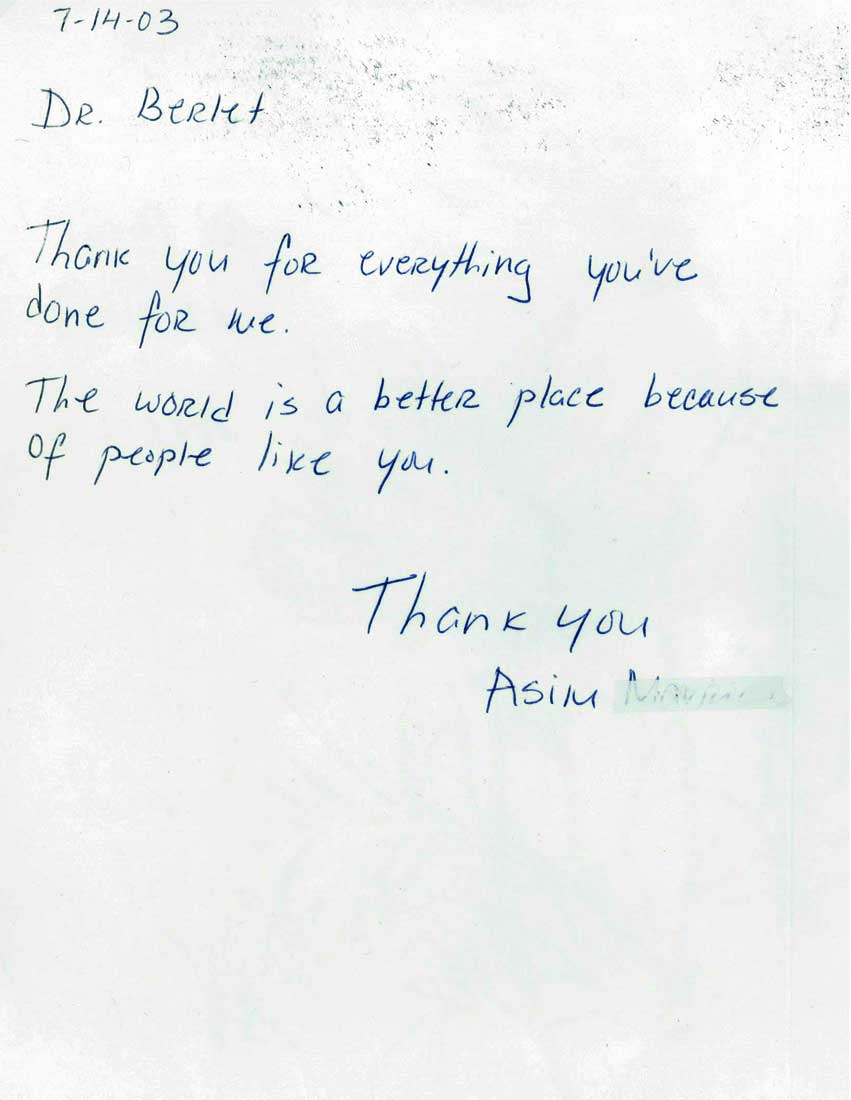 7-14-03
DR. Berlet
Thank you for everything you've
done for me.
The world is a better place because
of people like you.
Thank you
Asim